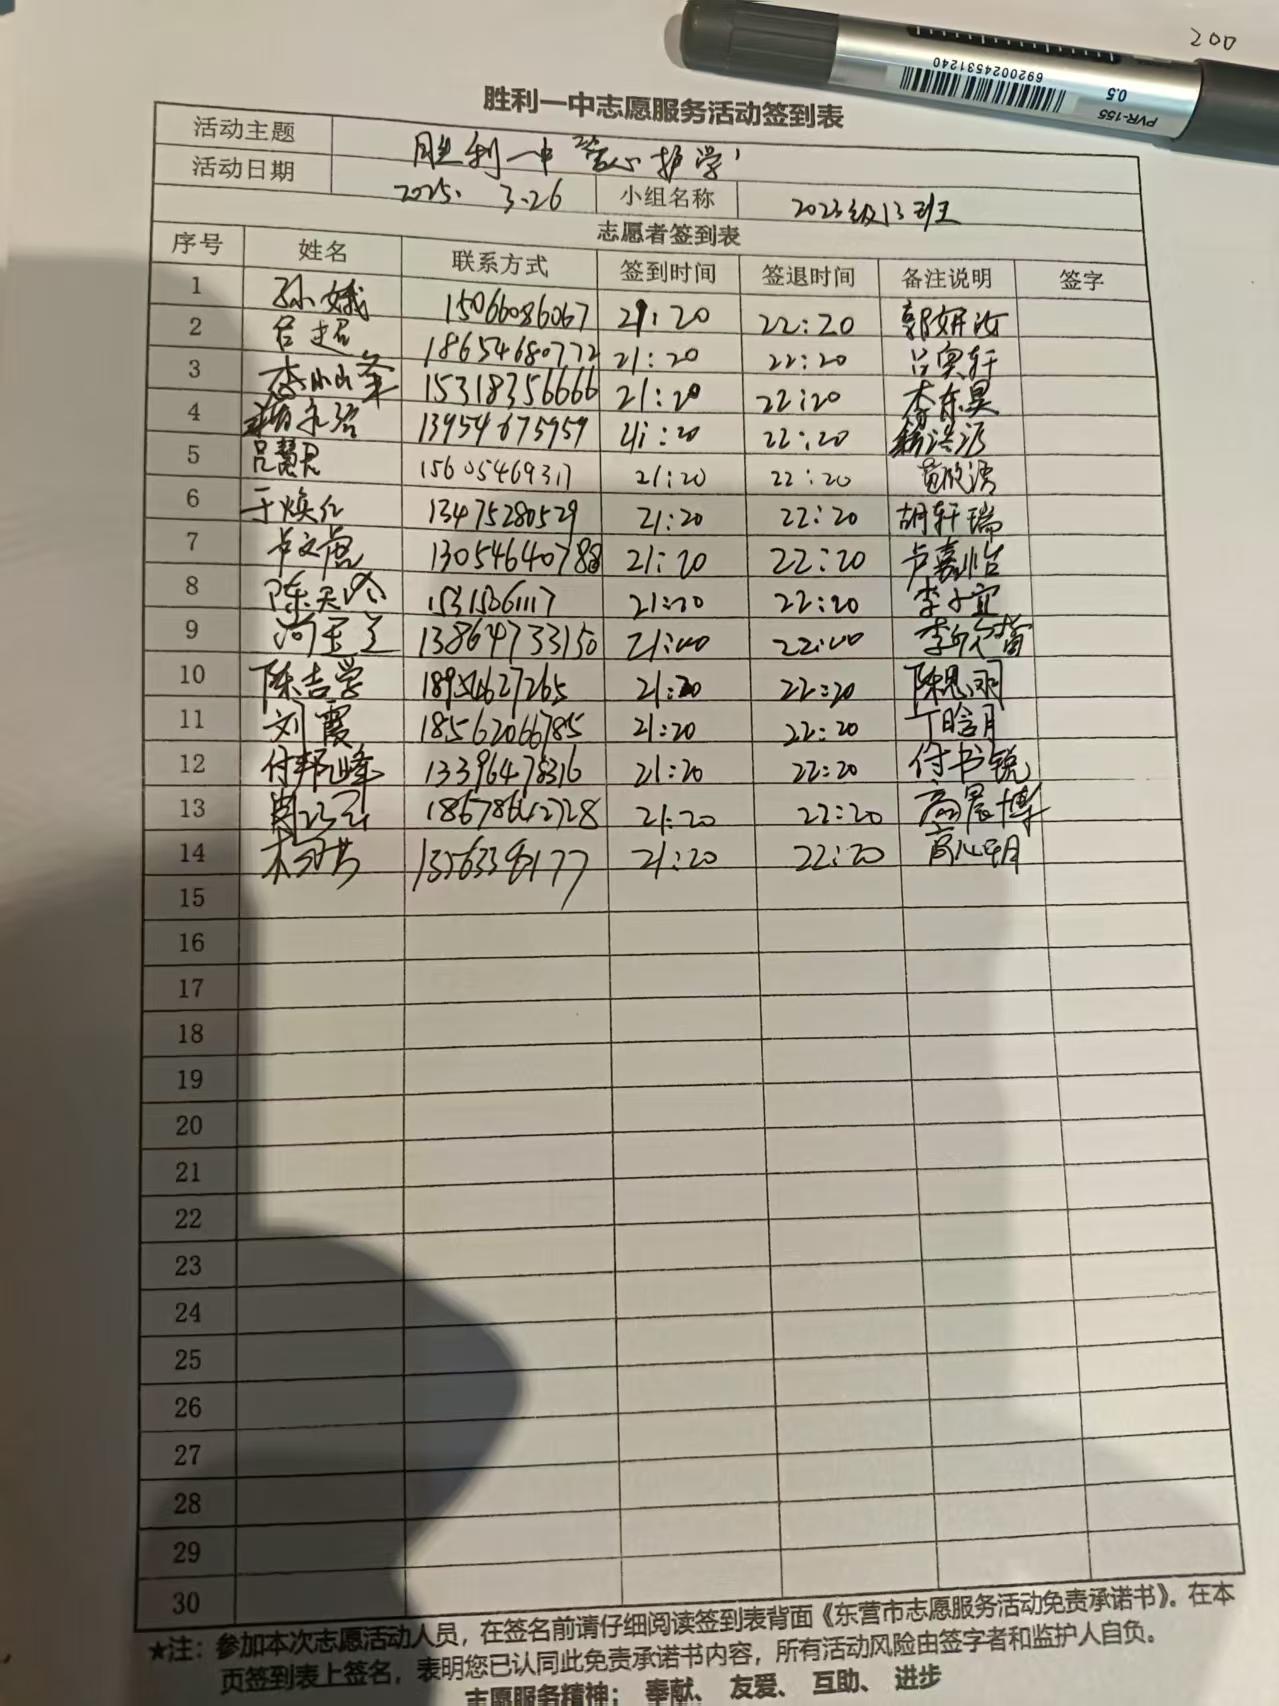 200
6920024531240
0.5
PVR-155
胜利一中志愿服务活动签到表
活动主题 胜利一中"爱心护学"
活动日期 2025. 3.26 小组名称 2023级13班
志愿者签到表
序号 姓名 联系方式 签到时间 签退时间 备注说明 签字
1 孙娥 15066086067 21:20 22:20 郭妍汝
2 吕超 18654680772 21:20 22:20 吕奕轩
3 15318356666 21:20 22:20
4 13954675959 21:20 22:20
5 吕慧君 15605469317 21:20 22:20
6 于焕红 13475280529 21:20 22:20 胡轩瑞
7 卢文虎 13054640788 21:20 22:20 卢嘉怡
8 陈 15315061117 21:20 22:20 李子宜
9 13864733150 21:00 22:00 李
10 陈吉学 18954627265 21:20 22:20 陈思羽
11 刘霞 18562066785 21:20 22:20 丁晗月
12 付邦峰 13396478316 21:20 22:20 付书锐
13 18678642728 21:20 22:20 高晨博
14 21:20 22:20 高心玥
15
16
17
18
19
20
21
22
23
24
25
26
27
28
29
30
★注：参加本次志愿活动人员，在签名前请仔细阅读签到表背面《东营市志愿服务活动免责承诺书》。在本
页签到表上签名，表明您已认同此免责承诺书内容，所有活动风险由签字者和监护人自负。
志愿服务精神：奉献、友爱、互助、进步